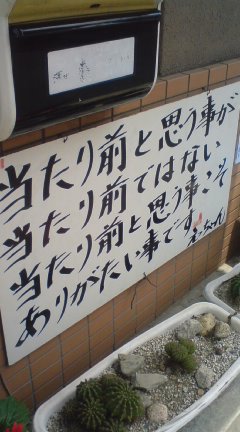 当たり前と思う事が
当たり前ではない
当たり前と思う事こそ
ありがたい事です。